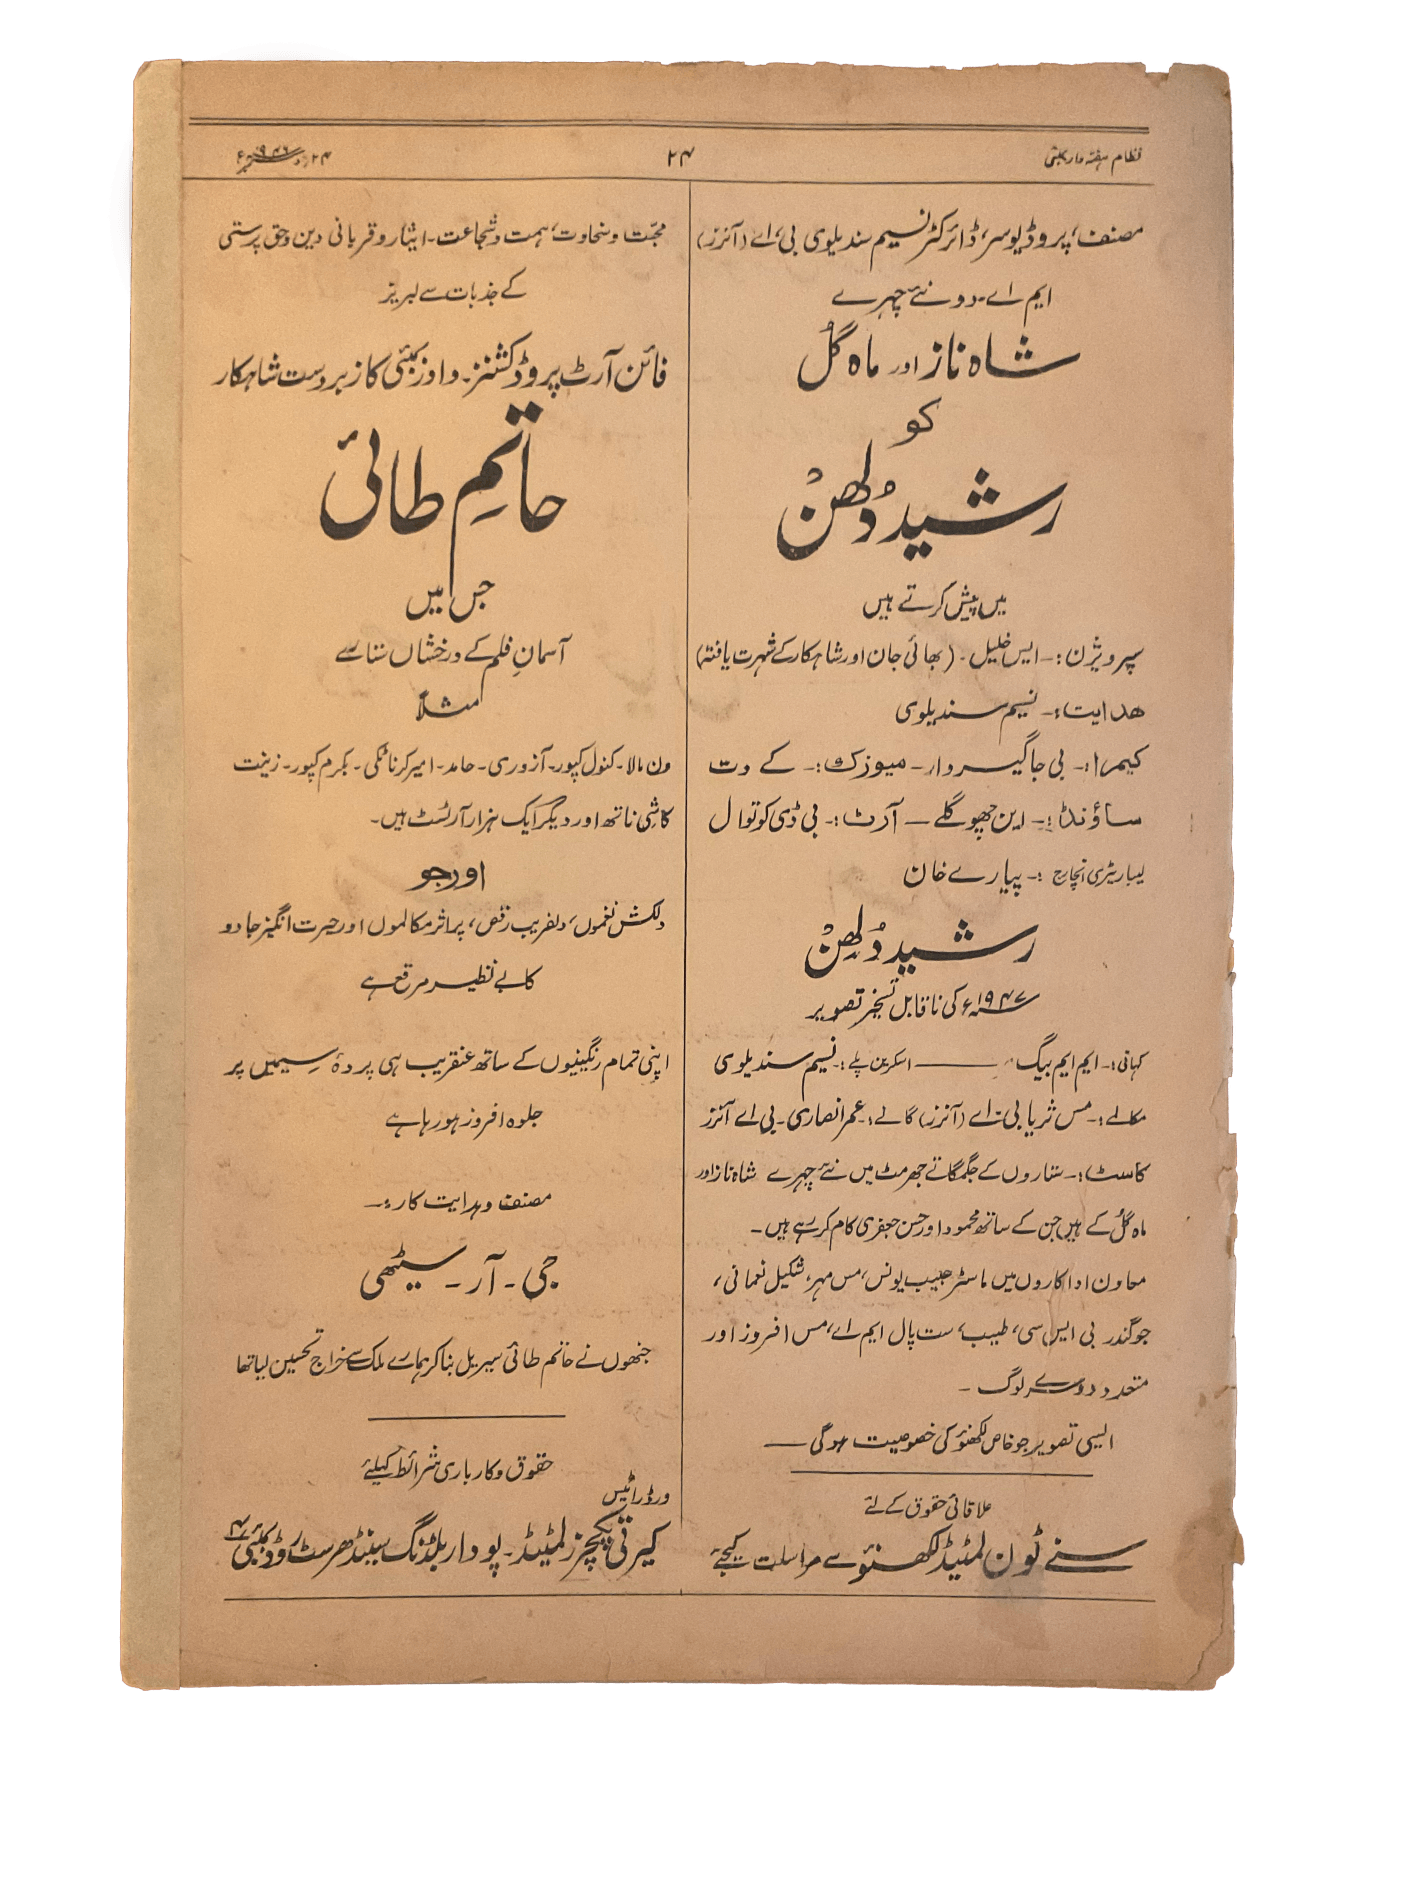 نظام ہفتہ وار بمبئی
۲۴
۲۴ دسمبر ۱۹۴۶ء
مصنف، پروڈیوسر، ڈائرکٹر نسیم سندیلوی بی، اے (آنرز)
ایم اے۔ دو نئے چہرے
شاہ ناز اور ماہ گل
کو
رشید دُلھن
میں پیش کرتے ہیں
سپرویژن :۔ ایس خلیل۔ (بھائی جان اور شاہکار کے شہرت یافتہ)
ھدایت :۔ نسیم سندیلوی
کیمرا :۔ بی جاگیردار۔ میوزک :۔ کے دت
ساؤنڈ :۔ این چھوگلے ۔ آرٹ :۔ بی ڈی کوتوال
لیباریٹری انچارج :۔ پیارے خان
رشید دُلھن
۱۹۴۷ء کی ناقابل تسخیر تصویر
کہانی :۔ ایم ایم بیگ ۔ اسکرین پلے :۔ نسیم سندیلوی
مکالمے :۔ مس ثریا بی۔اے (آنرز) گانے :۔ عمر انصاری۔ بی اے آنرز
کاسٹ :۔ ستاروں کے جگمگاتے جھرمٹ میں نئے چہرے شاہ ناز اور
ماہ گُل کے ہیں جن کے ساتھ محمود اور حسن جعفری کام کر رہے ہیں۔
معاون اداکاروں میں ماسٹر حبیب یونس، مس مہر، شکیل نعمانی،
جوگندر بی ایس سی، طبیب، ست پال ایم اے، مس افروز اور
متعدد دوسرے لوگ ۔
ایسی تصویر جو خاص لکھنؤ کی خصوصیت ہوگی ۔
علاقائی حقوق کے لئے
سنے ٹون لمٹیڈ لکھنؤ سے مراسلت کیجئے
محبّت و سخاوت، ہمت و شجاعت۔ ایثار و قربانی دین و حق پرستی
کے جذبات سے لبریز
فائن آرٹ پروڈکشنز۔ داور بمبئی کا زبردست شاہکار
حاتمِ طائی
جس میں
آسمانِ فلم کے درخشاں ستارے
مثلاً
ون مالا۔ کنول کپور۔ آزوری۔ حامد۔ امیر کرناٹکی۔ بکرم کپور۔ زینت
کاشی ناتھ اور دیگر ایک ہزار آرٹسٹ ہیں۔
اور جو
دلکش نغموں، دلفریب رقص، پر اثر مکالموں اور حیرت انگیز جادو
کا بے نظیر مرقع ہے
اپنی تمام رنگینیوں کے ساتھ عنقریب ہی پردۂ سیمیں پر
جلوہ افروز ہو رہا ہے
مصنف و ہدایت کار :۔
جی ۔ آر ۔ سیٹھی
جنھوں نے حاتم طائی سیریل بنا کر ہمارے ملک سے خراج تحسین لیا تھا
حقوق و کارباری شرائط کیلئے
ورڈ رائیس
کیرتی پکچرز لمٹیڈ۔ پودار بلڈنگ سینڈھرسٹ روڈ بمبئی ۴